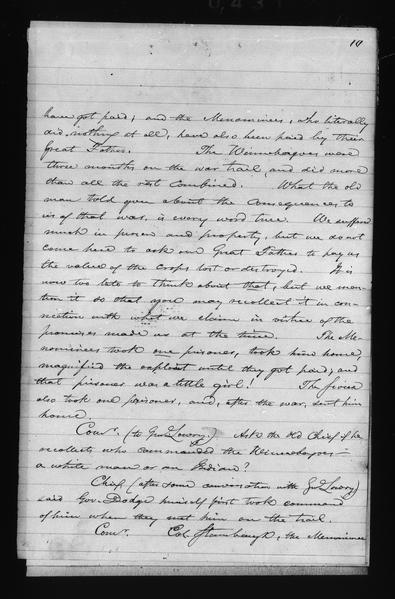 10
have got paid; and the Menominees, who literally
did nothing at all, have also been paid by their
Great Father. The Winnebagoes were
three months on the war trail, and did more
than all the rest combined. What the old
man told you about the consequences to
us of that war, is every word true. We suffered
much in person and property, but we do not
come here to ask our Great Father to pay us
the value of the crops lost or destroyed. It is
now too late to think about that; but we men-
tion it so that you may recollect it in con-
nection with what we claim in virtue of the
promises made us at the time. The Me-
nominees took one prisoner, took him home,
magnified the exploit until they got paid; and
that prisoner was a little girl! The
also took one prisoner, and, after the war, sent him
home.
Comr. (to Gov. Lowry.) Ask the old Chief if he
recollects who commanded the Winnebagoes—
a white man or an Indian?
Chief (after some conversation with Gov. Lowry)
said Gov. Dodge himself first took command
of him when they met him on the trail.
Comr. Col. Stambaugh, the Menominee